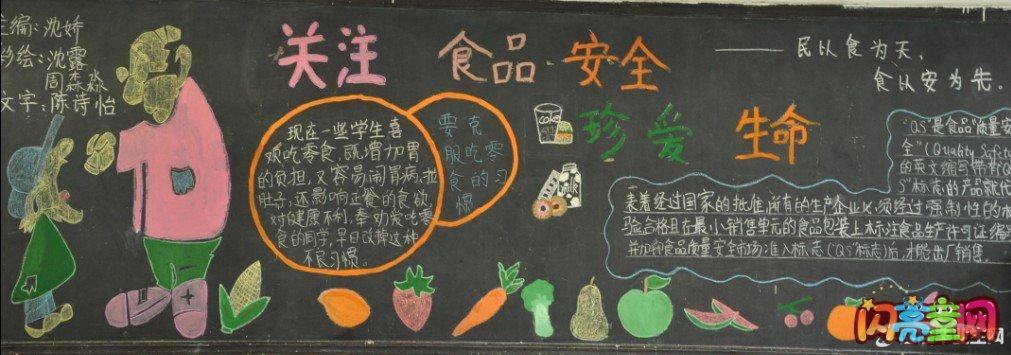 主编:沈娇
彩绘:沈露
周森淼
文字:陈诗怡
关注 食品安全
珍爱 生命
——民以食为天,
食以安为先。
现在一些学生喜
欢吃零食,既增加胃
的负担,又容易闹胃病,拉
肚子,还影响正餐的食欲,
对健康不利,奉劝爱吃零
食的同学,早日改掉这种
不良习惯。
要克
服吃零
食的习
惯
cola
"QS"是食品"质量安
全"(Quality Safety
的英文缩写带有Q
S"标志的产品就代
表着经过国家的批准所有的生产企业必须经过强制性的检
验合格且在最小销售单元的食品包装上标注食品生产许可证编号
并加印食品质量安全市场准入标志("QS"标志)后,才能出厂销售。
闪亮童网